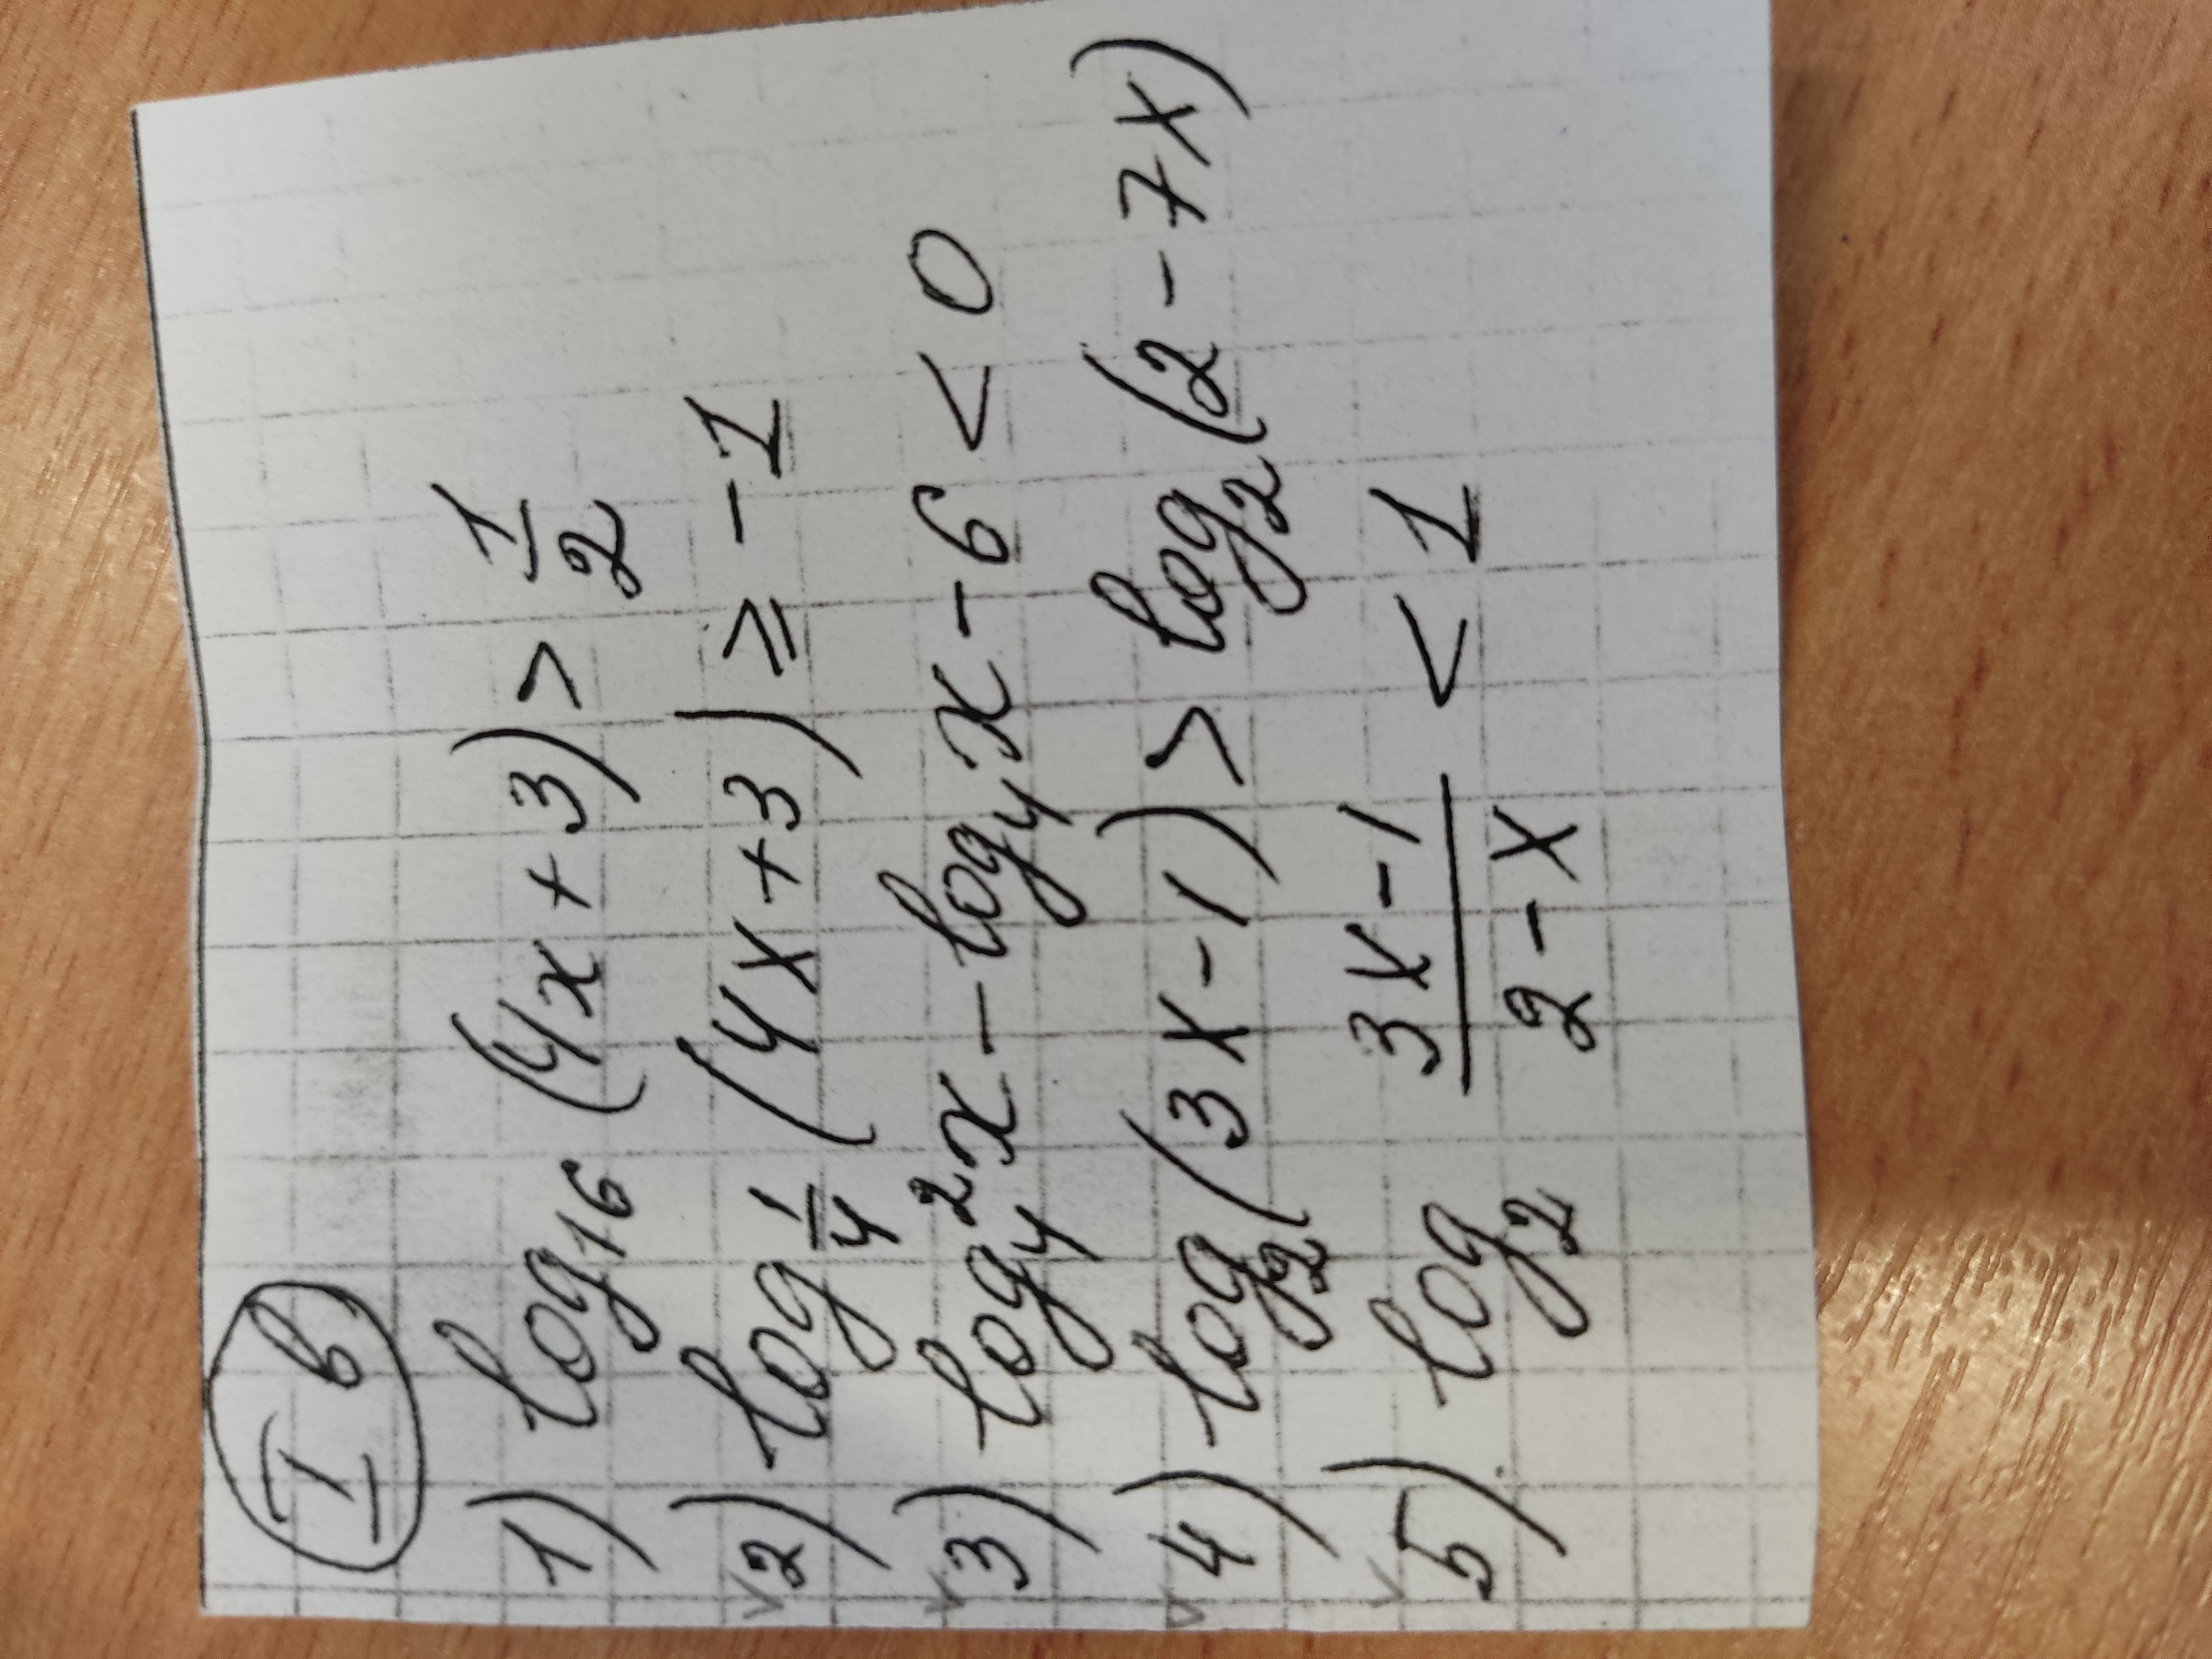 I в
1) log₁₆ (4x + 3) > 1/2
2) log_{1/4} (4x + 3) ≥ -1
3) log₄² x - log₄ x - 6 < 0
4) log₂ (3x - 1) > log₂ (2 - 7x)
5) log₂ (3x - 1)/(2 - x) < 1